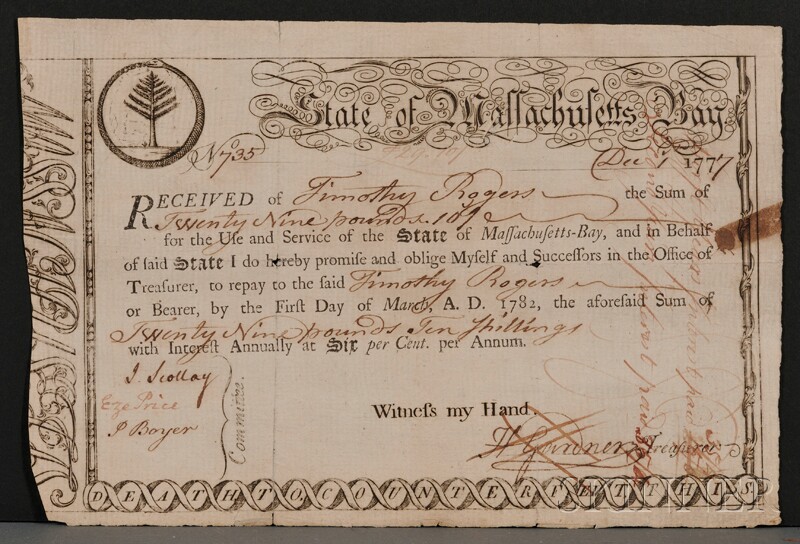 State of Massachusetts Bay
No 735
Dec 1 1777
RECEIVED of Timothy Rogers the Sum of
Twenty Nine pounds 10/
for the Use and Service of the State of Massachusetts-Bay, and in Behalf
of said State I do hereby promise and oblige Myself and Successors in the Office of
Treasurer, to repay to the said Timothy Rogers
or Bearer, by the First Day of March, A. D. 1782, the aforesaid Sum of
Twenty Nine pounds Ten Shillings
with Interest Annually at Six per Cent. per Annum.
J. Scollay
Eze Price
P Boyer
Committee.
Witness my Hand.
H Gardner Treasurer
DEATH TO COUNTERFEIT THIS
SKINNER